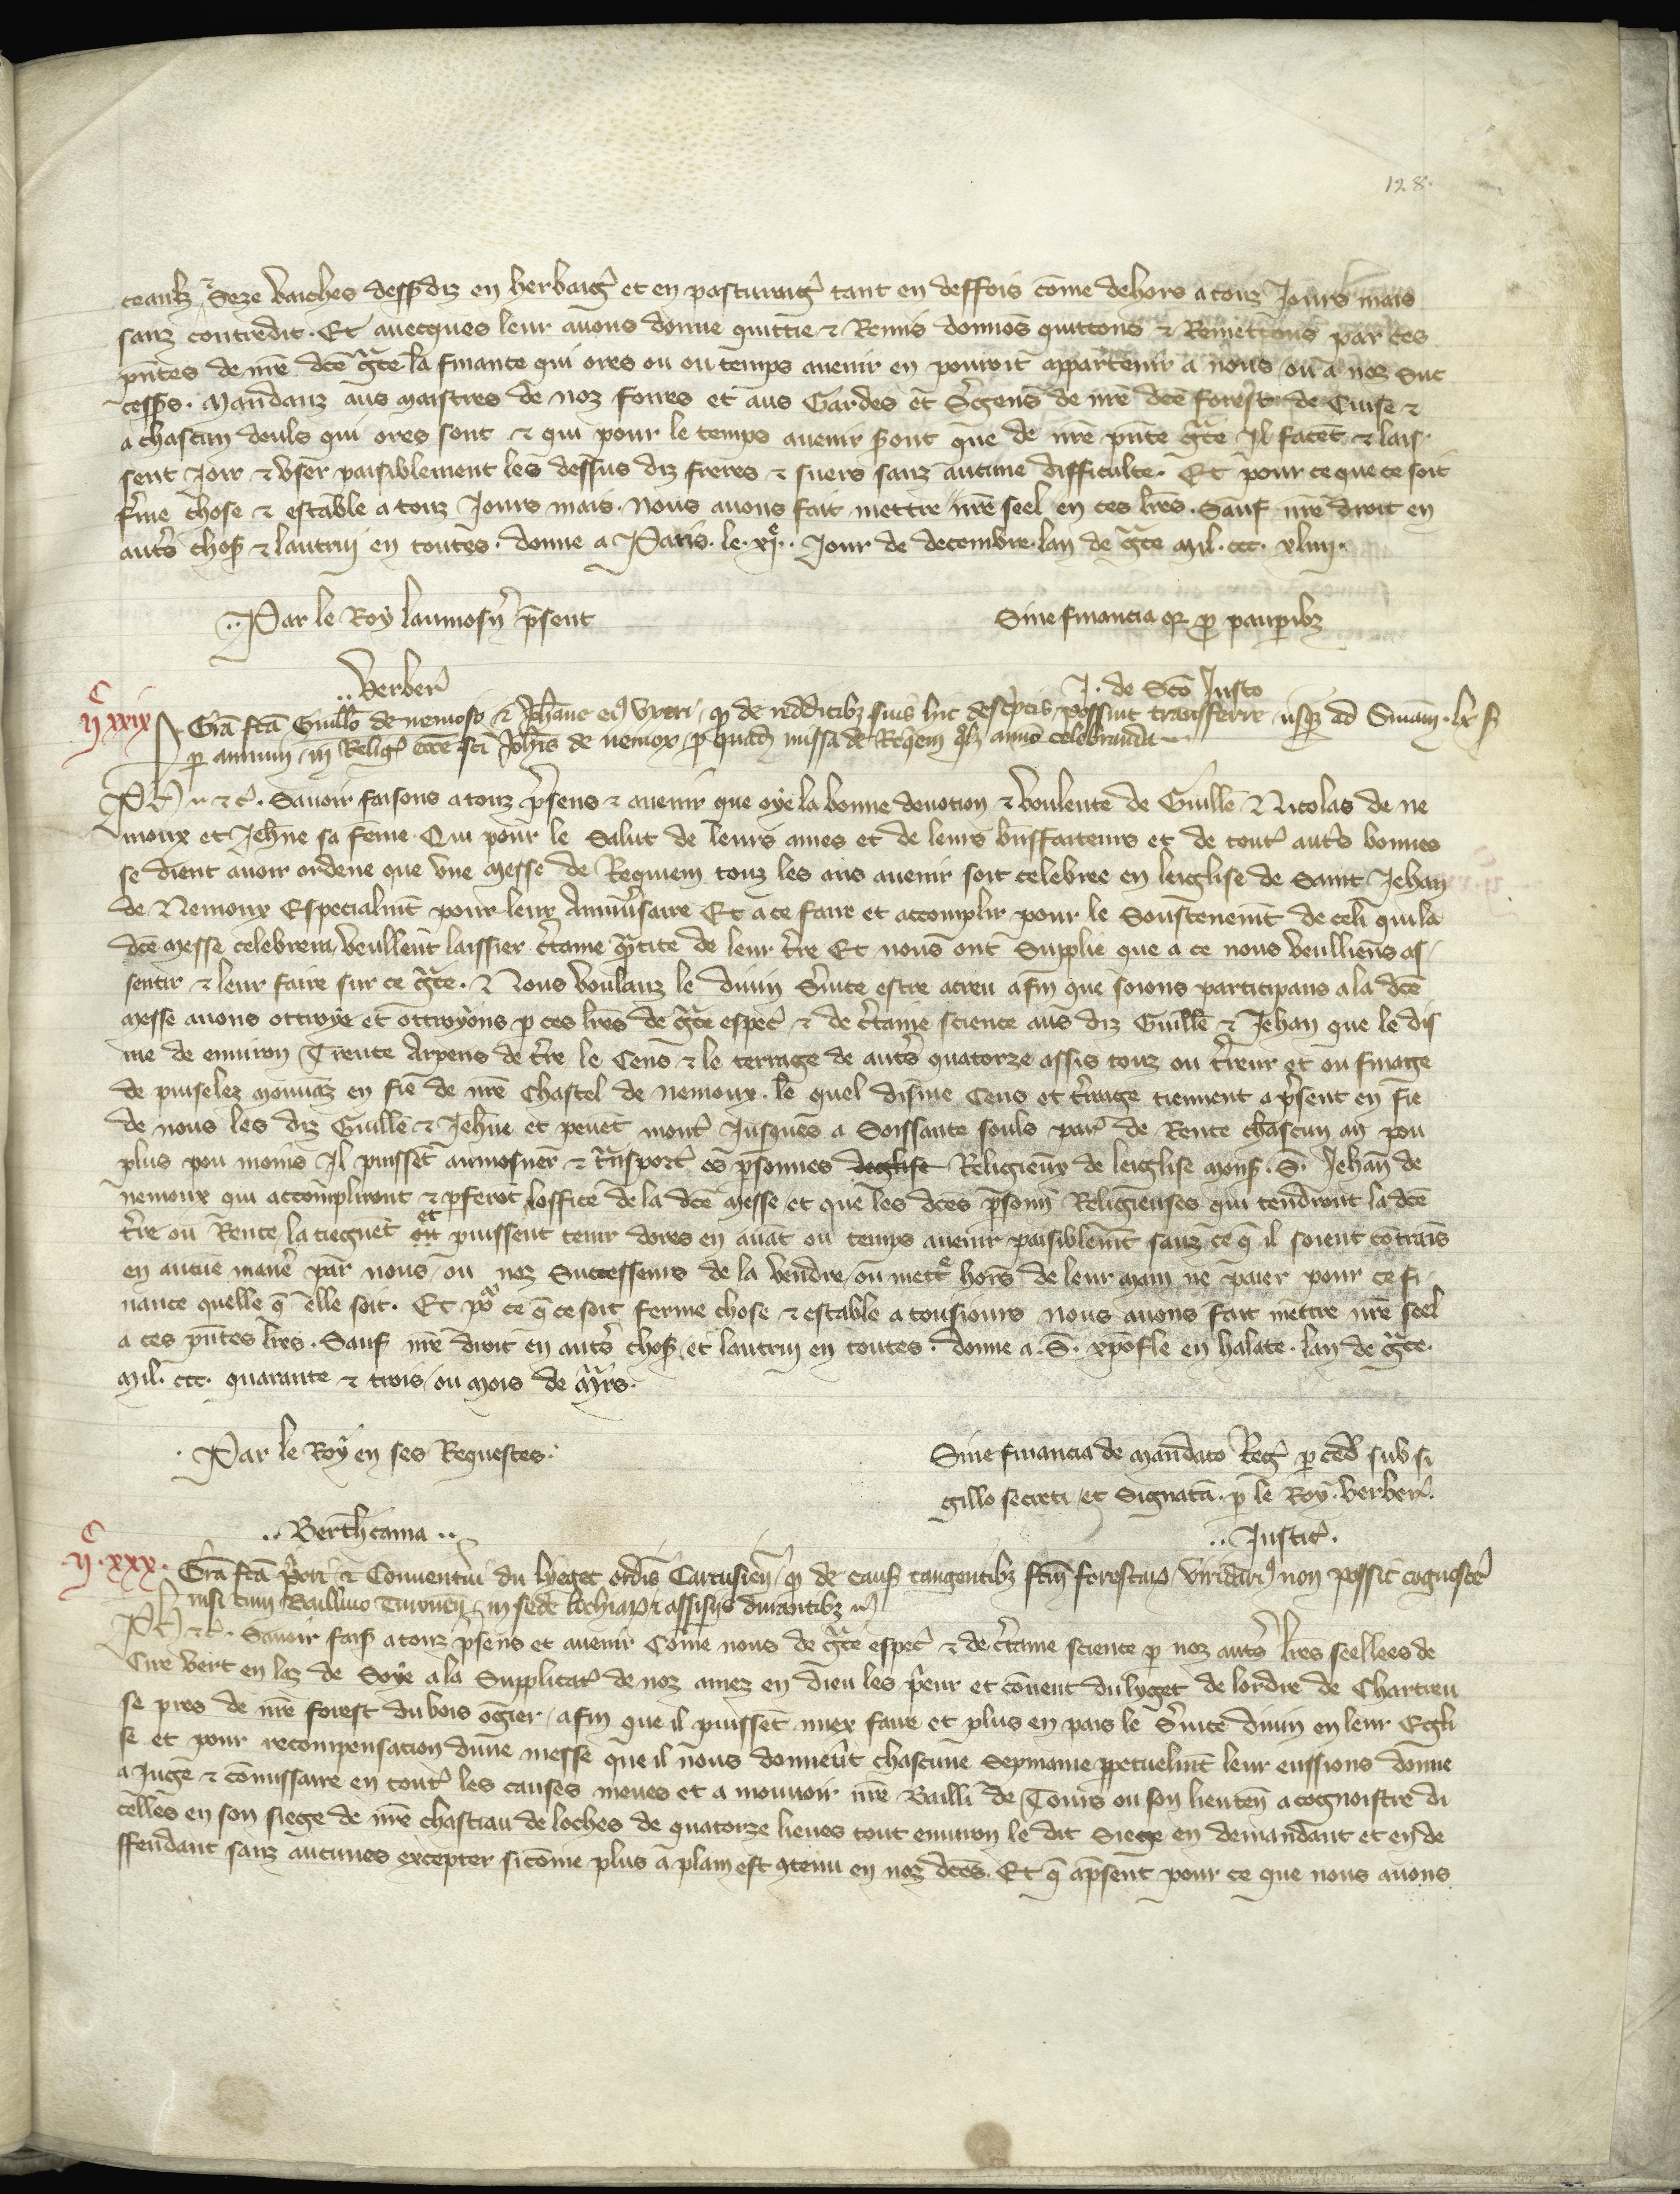 128.
ceaulz & Seze vaiches dessusdiz en herbaig̃ et en pasturaig̃ tant en deffois cōme dehors a touz Jours mais
sanz contredit. Et auecques leur auons donne quittie & Remis donnōs quittons & Remettons par ces
pñtes de nr̃e dc̃e gr̃ce la finance qui ores ou ou temps auenir en pouroit appartenir a nous ou a noz Suc
cess̃s. Mandanz aus maistres de noz fores et aus Gardes et S̃gens de nr̃e dc̃e forest de Cuise &
a chascun deuls qui ores sont & qui pour le temps auenir s̃ont que de nr̃e pñte gr̃ce Il facēt & lais
sent Joir & vser paisiblement les dessus diz freres & suers sanz aucune difficulte. Et pour ce que ce soit
f̃me chose & estable a touz Jours mais. Nous auons fait mettre nr̃e seel en ces lr̃es. Sauf nr̃e droit en
aut̃s chos̃ & lautruy en toutes. donne a Paris. le. xj̃ᵉ. Jour de decembre. lan de gr̃ce mil. ccc. xliiij.
Par le Roy laumosñ p̃sent
Sine financia qr̃ pro paup̃ibz
Verber̃
J. de Sc̃o Justo
ijᶜ xxix
Gr̃a fc̃a Guillõ de nemoso & Joh̃anne eiꝰ vxori / qꝫ de redditibz suis hic desc̃ptis / possint transferre / usqz ad Sũmam. lx. s̃
p annum / in Religꝰ ecc̃e sc̃i Joh̃is de nemox / p quad̃ missa de Req̃em q̃lz anno celebranda
Ph̃ &c̃. Sauoir faisons a touz p̃sens & auenir que oye la bonne deuotion & voulente de Guillẽ Nicolas de ne
moux et Jeh̃ne sa fẽme. Qui pour le Salut de leurs ames et de leurs bñffaiteurs et de tout̃ aut̃s bonnes
se dient auoir ordene que vne messe de Requiem touz les ans auenir soit celebree en leiglise de Saint Jehan
de Nemoux Especialmẽt pour leur Anniũsaire Et a ce faire et accomplir pour le Soustenemẽt de celi qui la
dc̃e messe celebrera / veullent laissier c̃taine q̃ntite de leur t̃re Et nous ont Supplie que a ce nous veulliens as
sentir & leur faire sur ce gr̃ce. & Nous voulanz le diuin S̃uice estre acreu afin que soions participans a la dc̃e
messe auons ottroye et ottroyons p ces lr̃es de gr̃ce espec̃ & de c̃taine science aus diz Guillẽ & Jehan que le dis
me de enuiron Trente Arpens de t̃re le Cens & le terrage de aut̃s quatorze assis touz ou t̃reur et ou finage
de puiselez mouuãz en fie de nr̃e Chastel de nemoux. le quel disme Cens et t̃rage tiennent a p̃sent en fie
de nous les diz Guillẽ & Jeh̃ne et peuẽt mont̃ Jusques a Soissante souls par̃ de Rente chascun an pou
plus pou moins Il puissẽt aumosner & t̃nsport̃ es p̃sonnes deglise Religieux de leiglise mons̃. S̃. Jehan de
nemoux qui accompliront & p̃ferõt loffice de la dc̃e messe et que les dc̃es p̃sonñ Religieuses qui tendront la dc̃e
t̃re ou Rente la tiegnẽt et puissent tenir dores en auãt ou temps auenir paisiblemẽt sanz ce q̃ il soient cõtrais
en aucũe maneᵉ par nous / ou noz Successeurs de la vendre / ou mett̃ hors de leur main ne paier pour ce fi
nance quelle q̃ elle soit. Et po᷑ ce q̃ ce soit ferme chose & estable a tousiours nous auons fait mettre nr̃e seel
a ces pñtes lr̃es. Sauf nr̃e droit en aut̃s chos̃ et lautruy en toutes. donne a. S̃. xp̃ofle en halate. lan de gr̃ce.
mil. ccc. quarante & trois / ou mois de m̃rs.
Par le Roy en ses Requestes.
Sine financia de mandato Reg̃ p ced̃ sub si
gillo secreti / et Signatã. p le Roy. Verber̃.
Berth̃. cama
Justic̃.
ijᶜ. xxx.
Gr̃a fc̃a p̃ori & Conuentui du lyeget ordĩs Cartusieñ / qꝫ de caus̃ tangentibz fc̃m forestarꝝ / viridariꝰ non possit cognosc̃e
nisi cum Bailliuo Turoneñ / in sede lochiarꝝ & assisijs durantibz
Ph̃ &c̃. Sauoir fais̃ a touz p̃sens et auenir Cõme nous de gr̃ce espec̃ & de c̃taine science p noz aut̃s lr̃es seellees de
Cire vert en laz de Soye a la Supplicac̃ de noz amez en dieu les p̃eur et cõuent du lyget de lordre de Chartreu
se pres de nr̃e forest du bois ogier / afin que il puissẽt miex faire et plus en pais le S̃uice diuin en leur Egli
se et pour recompensacion dune messe que il nous donnerẽt chascune Sepmaine p̃petuelmt̃ leur eussions donne
a Juge & cõmissaire en tout̃ les causes meues et a mouuoir nr̃e Bailli de Tours ou son lieuteñ a cognoistre di
celles en son siege de nr̃e chastiau de loches de quatorze lieues tout enuiron le dit Siege en demandant et en de
ffendant sanz aucunes excepter sicõme plus a plain est ꝯtenu en noz dc̃es. Et q̃ ap̃sent pour ce que nous auons